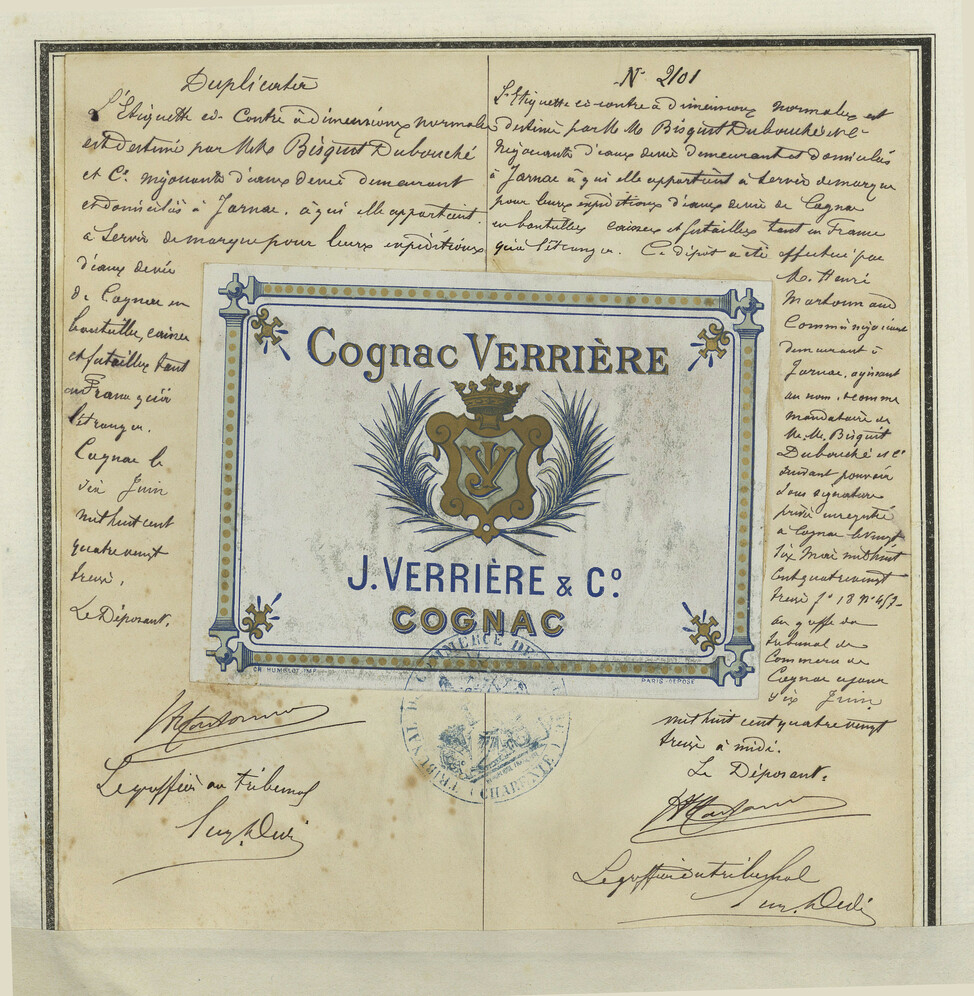 Duplicata
L'Etiquette ci-Contre à dimensions normales
est destiné par M.M. Bisquit Dubouché
et Cie. négociants d'eaux de vie demeurant
et domiciliés à Jarnac, à qui elle appartient
à servir de marque pour leurs expéditions
d'eaux de vie
de Cognac en
bouteilles, caisses
et futailles tant
en France qu'à
l'étranger.
Cognac le
dix Juin
mil huit cent
quatre vingt
treize.
Le Déposant.
Le greffier au tribunal
N° 2101
L'Etiquette ci-contre à dimensions normales est
destiné par M.M. Bisquit Dubouché et Cie
négociants d'eaux de vie demeurant et domiciliés
à Jarnac à qui elle appartient à servir de marque
pour leurs expéditions d'eaux de vie de Cognac
en bouteilles caisses et futailles tant en France
qu'à l'étranger. Ce dépôt a été effectué par
M. Henri
Commis négociant
demeurant à
Jarnac, agissant
au nom, & comme
mandataire de
M.M. Bisquit
Dubouché et Cie
suivant pouvoir
sous signature
privée enregistré
à Cognac le vingt
six Mai mil huit
cent quatre vingt
treize f° 18 n° 457
au greffe du
tribunal de
Commerce de
Cognac ce jour
dix Juin
mil huit cent quatre vingt
treize à midi.
Le Déposant.
Le greffier au tribunal
Cognac VERRIÈRE
J. VERRIÈRE & Co.
COGNAC
CH. HUMBLOT IMP.
PARIS DÉPOSÉ
TRIBUNAL DE COMMERCE DE
(CHARENTE)